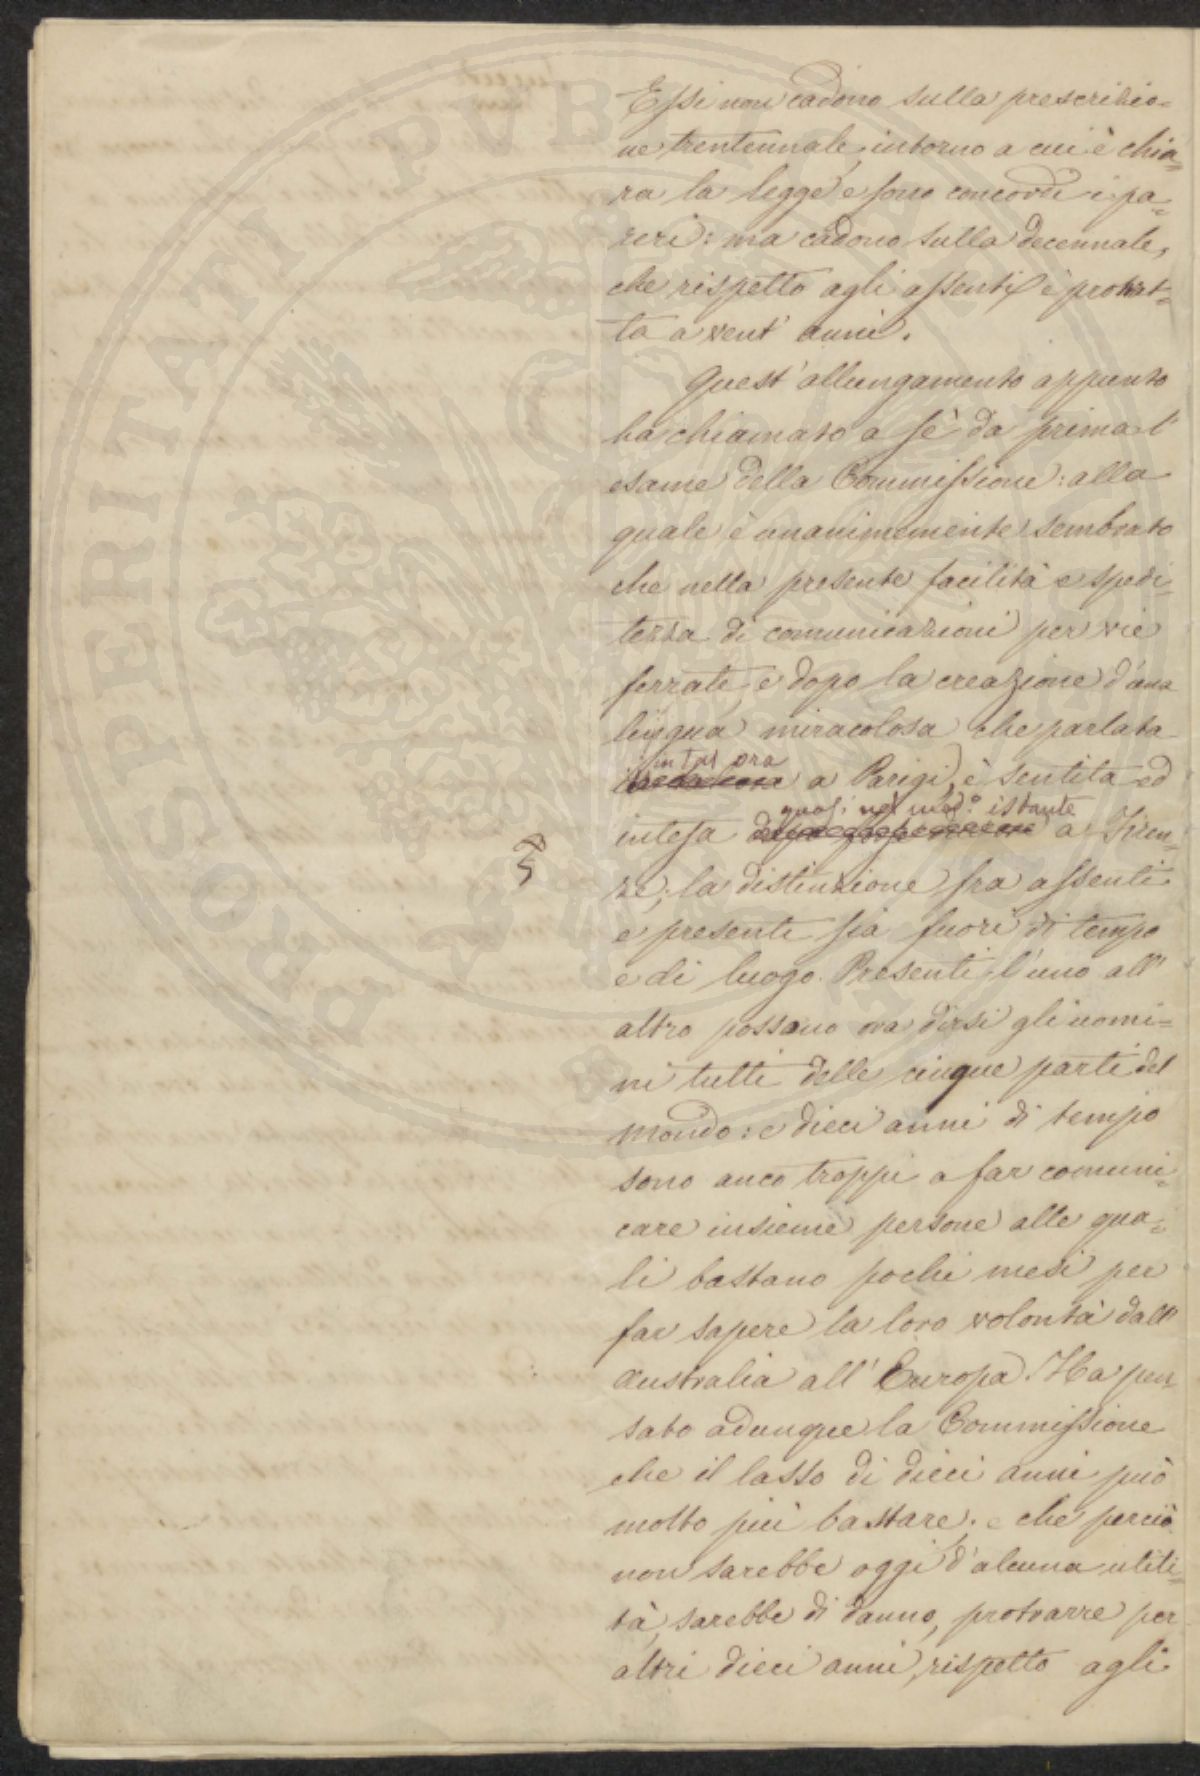 Essi non cadono sulla prescrizio=
ne trentennale, intorno a cui è chia=
ra la legge e sono concordi i pa=
reri: ma cadono sulla decennale,
che rispetto agli assenti è protrat=
ta a vent' anni.
Quest' allungamento appunto
ha chiamato a sè da prima l'
esame della Commissione: alla
quale è unanimemente sembrato
che nella presente facilità e spedi=
tezza di comunicazioni per vie
ferrate, e dopo la creazione d'una
lingua miracolosa che parlata
in tal ora
a Parigi, è sentita ed
quasi nel med.º istante
intesa a Firen=
ze, la distinzione fra assenti
e presenti sia fuori di tempo
e di luogo. Presenti l'uno all'
altro possano ora dirsi gli uomi=
ni tutti delle cinque parti del
mondo: e dieci anni di tempo
sono anco troppi a far comuni=
care insieme persone alle qua=
li bastano pochi mesi per
far sapere la loro volontà dall'
Australia all' Europa. Ha pen=
sato adunque la Commissione
che il lasso di dieci anni può
molto più bastare: e che perciò
non sarebbe oggi d'alcuna utili=
tà, sarebbe di danno, protrarre per
altri dieci anni, rispetto agli
PROSPERITATI PVBLICAE